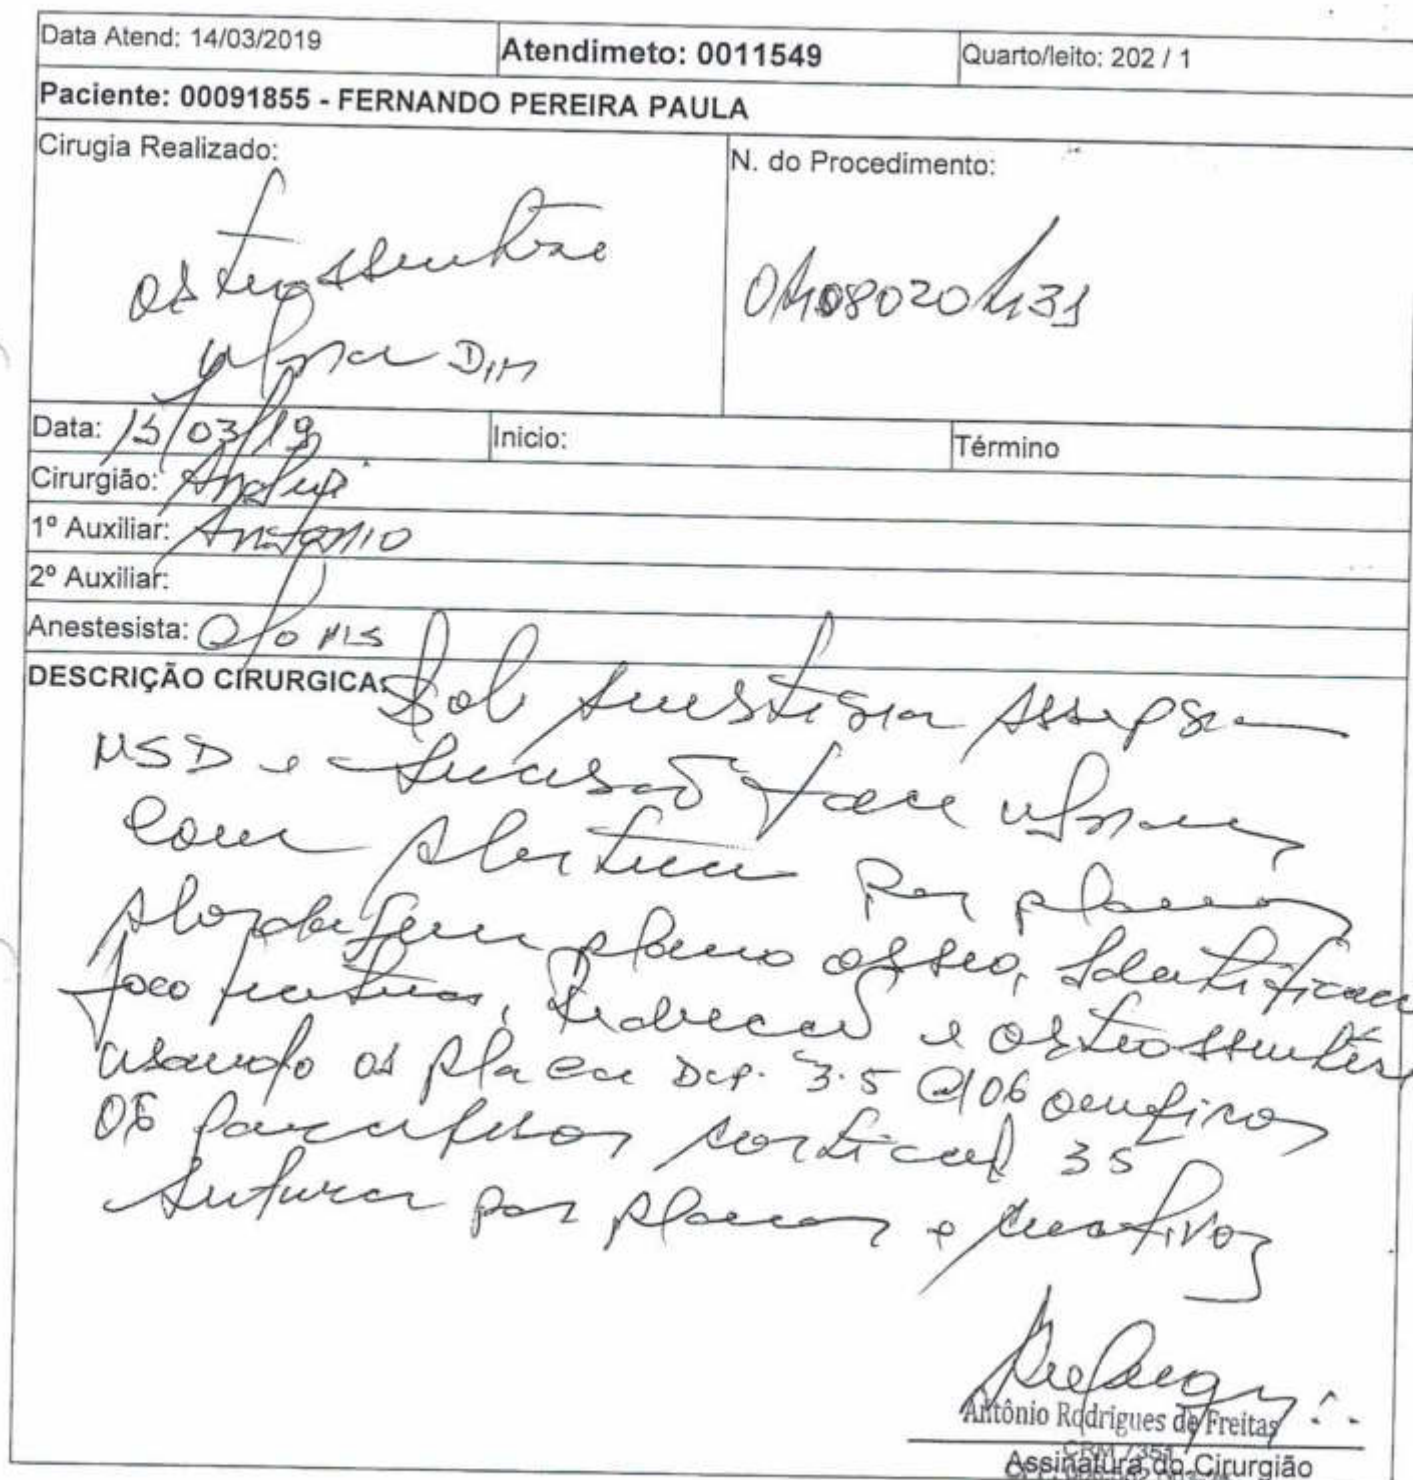 Data Atend: 14/03/2019 Atendimeto: 0011549 Quarto/leito: 202 / 1
Paciente: 00091855 - FERNANDO PEREIRA PAULA
Cirugia Realizado: N. do Procedimento:
osteossíntese 0408020431
ulna
Data: 15/03/19 Inicio: Término
Cirurgião:
1º Auxiliar: Antonio
2º Auxiliar:
Anestesista:
DESCRIÇÃO CIRURGICA: Sob anestesia assepsia
MSD e incisão face ulnar
com abertura por planos
abordagem plano osseo, identificado
foco fratura, redução e osteossíntese
usando 01 placa DCP. 3.5 c/ 06 orifícios
06 parafusos cortical 35
sutura por planos e curativos
Antônio Rodrigues de Freitas
CRM 7351
Assinatura do Cirurgião